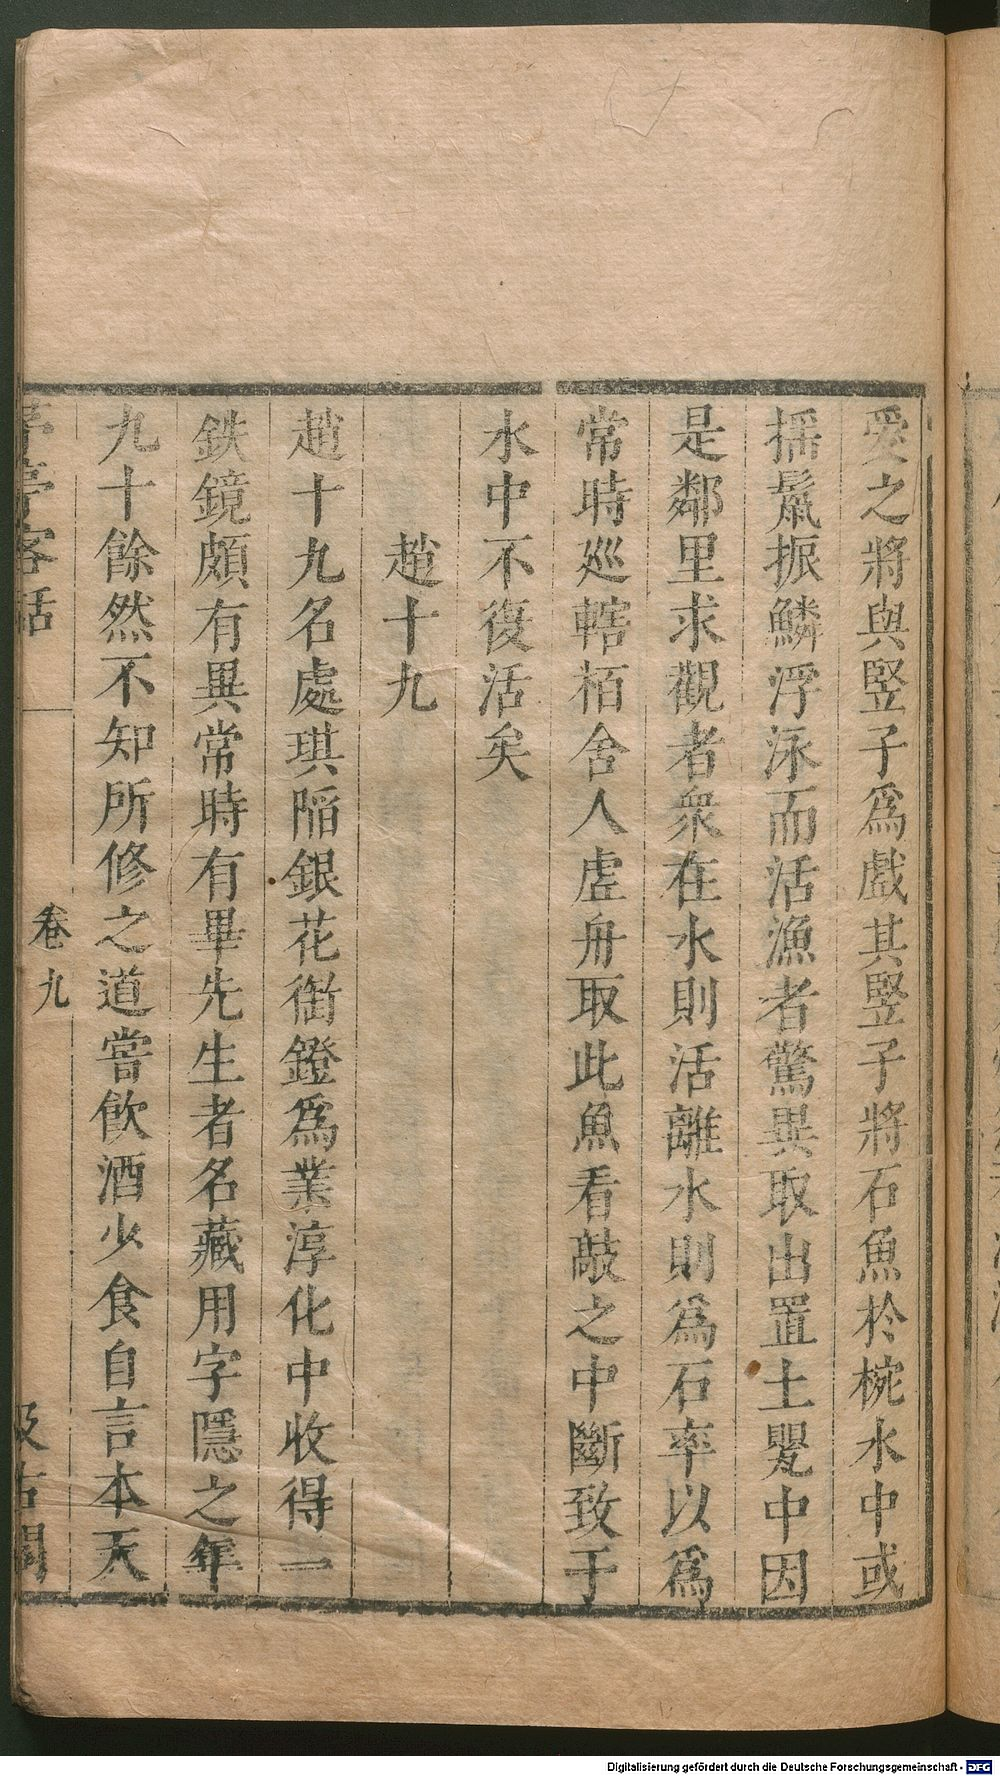 愛之將與竪子爲戲其竪子將石魚於椀水中或
揺鬣振鱗浮泳而活漁者驚異取出置土甖中因
是鄰里求觀者衆在水則活離水則爲石率以爲
常時巡轄栢舍人虚舟取此魚看敲之中斷致于
水中不復活矣
趙十九
趙十九名處琪陷銀花銜鐙爲業淳化中收得一
鉄鏡頗有異常時有畢先生者名藏用字隱之年
九十餘然不知所修之道嘗飮酒少食自言本天
亭客話
卷九
汲古閣
Digitalisierung gefördert durch die Deutsche Forschungsgemeinschaft - DFG